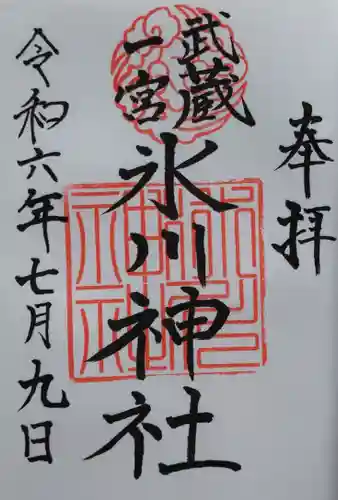 奉拝
武蔵
一宮
氷川神社
令和六年七月九日